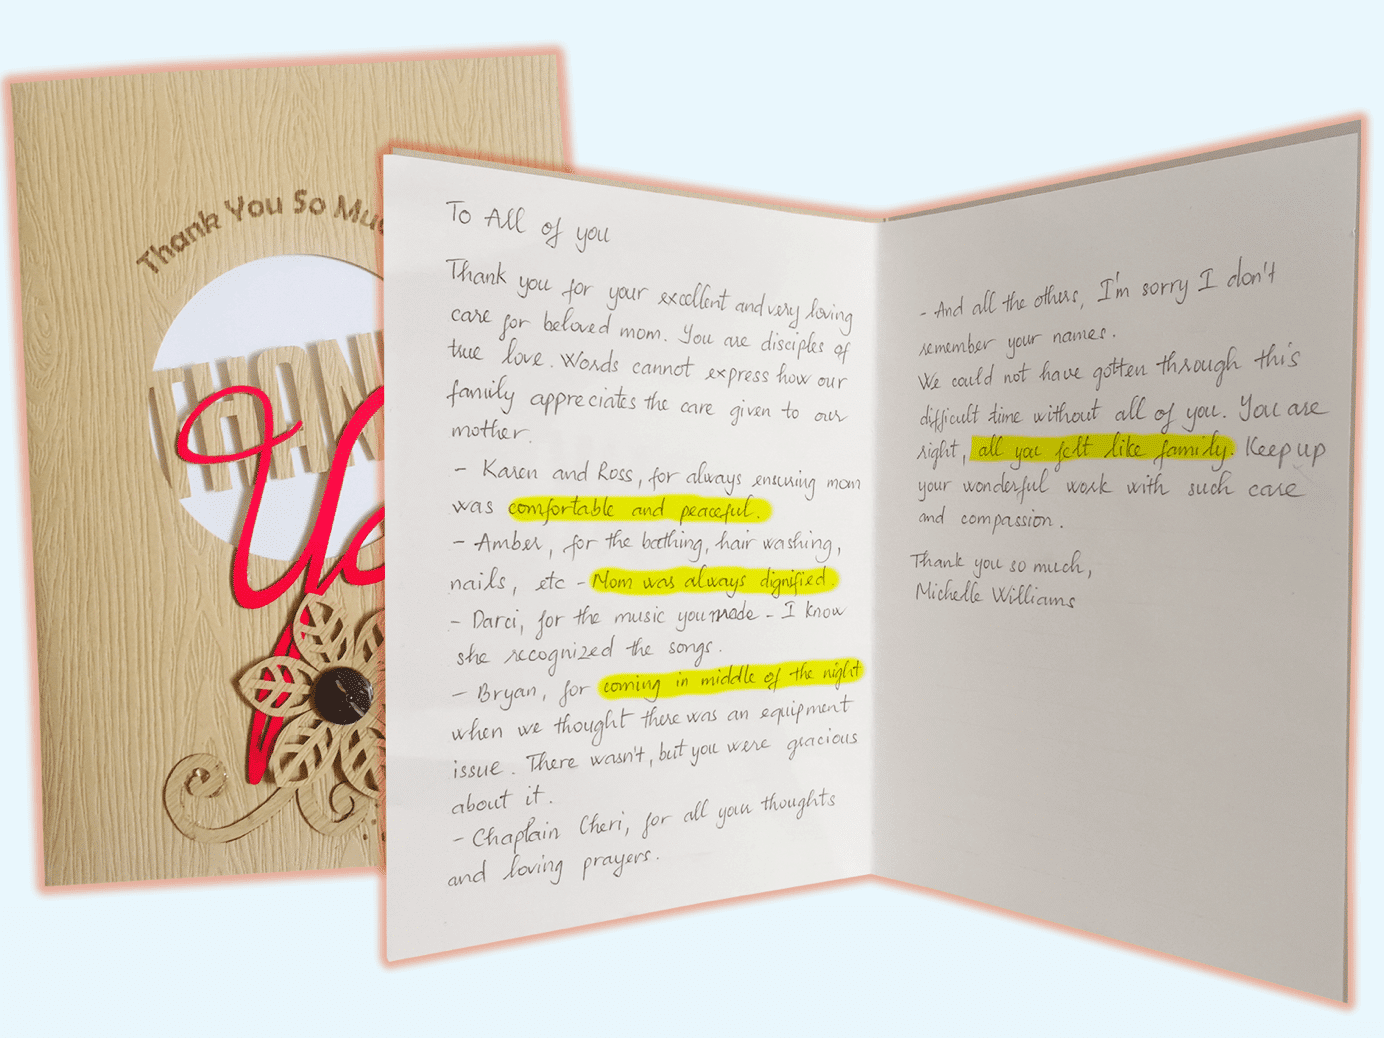 Thank You So Muc
THAN
Yo
To All of you
Thank you for your excellent and very loving
care for beloved mom. You are disciples of
true love. Words cannot express how our
family appreciates the care given to our
mother.
- Karen and Ross, for always ensuring mom
was comfortable and peaceful.
- Amber, for the bathing, hair washing,
nails, etc - Mom was always dignified.
- Darci, for the music you made - I know
she recognized the songs.
- Bryan, for coming in middle of the night
when we thought there was an equipment
issue. There wasn't, but you were gracious
about it.
- Chaplain Cheri, for all your thoughts
and loving prayers.
- And all the others, I'm sorry I don't
remember your names.
We could not have gotten through this
difficult time without all of you. You are
right, all you felt like family. Keep up
your wonderful work with such care
and compassion.
Thank you so much,
Michelle Williams